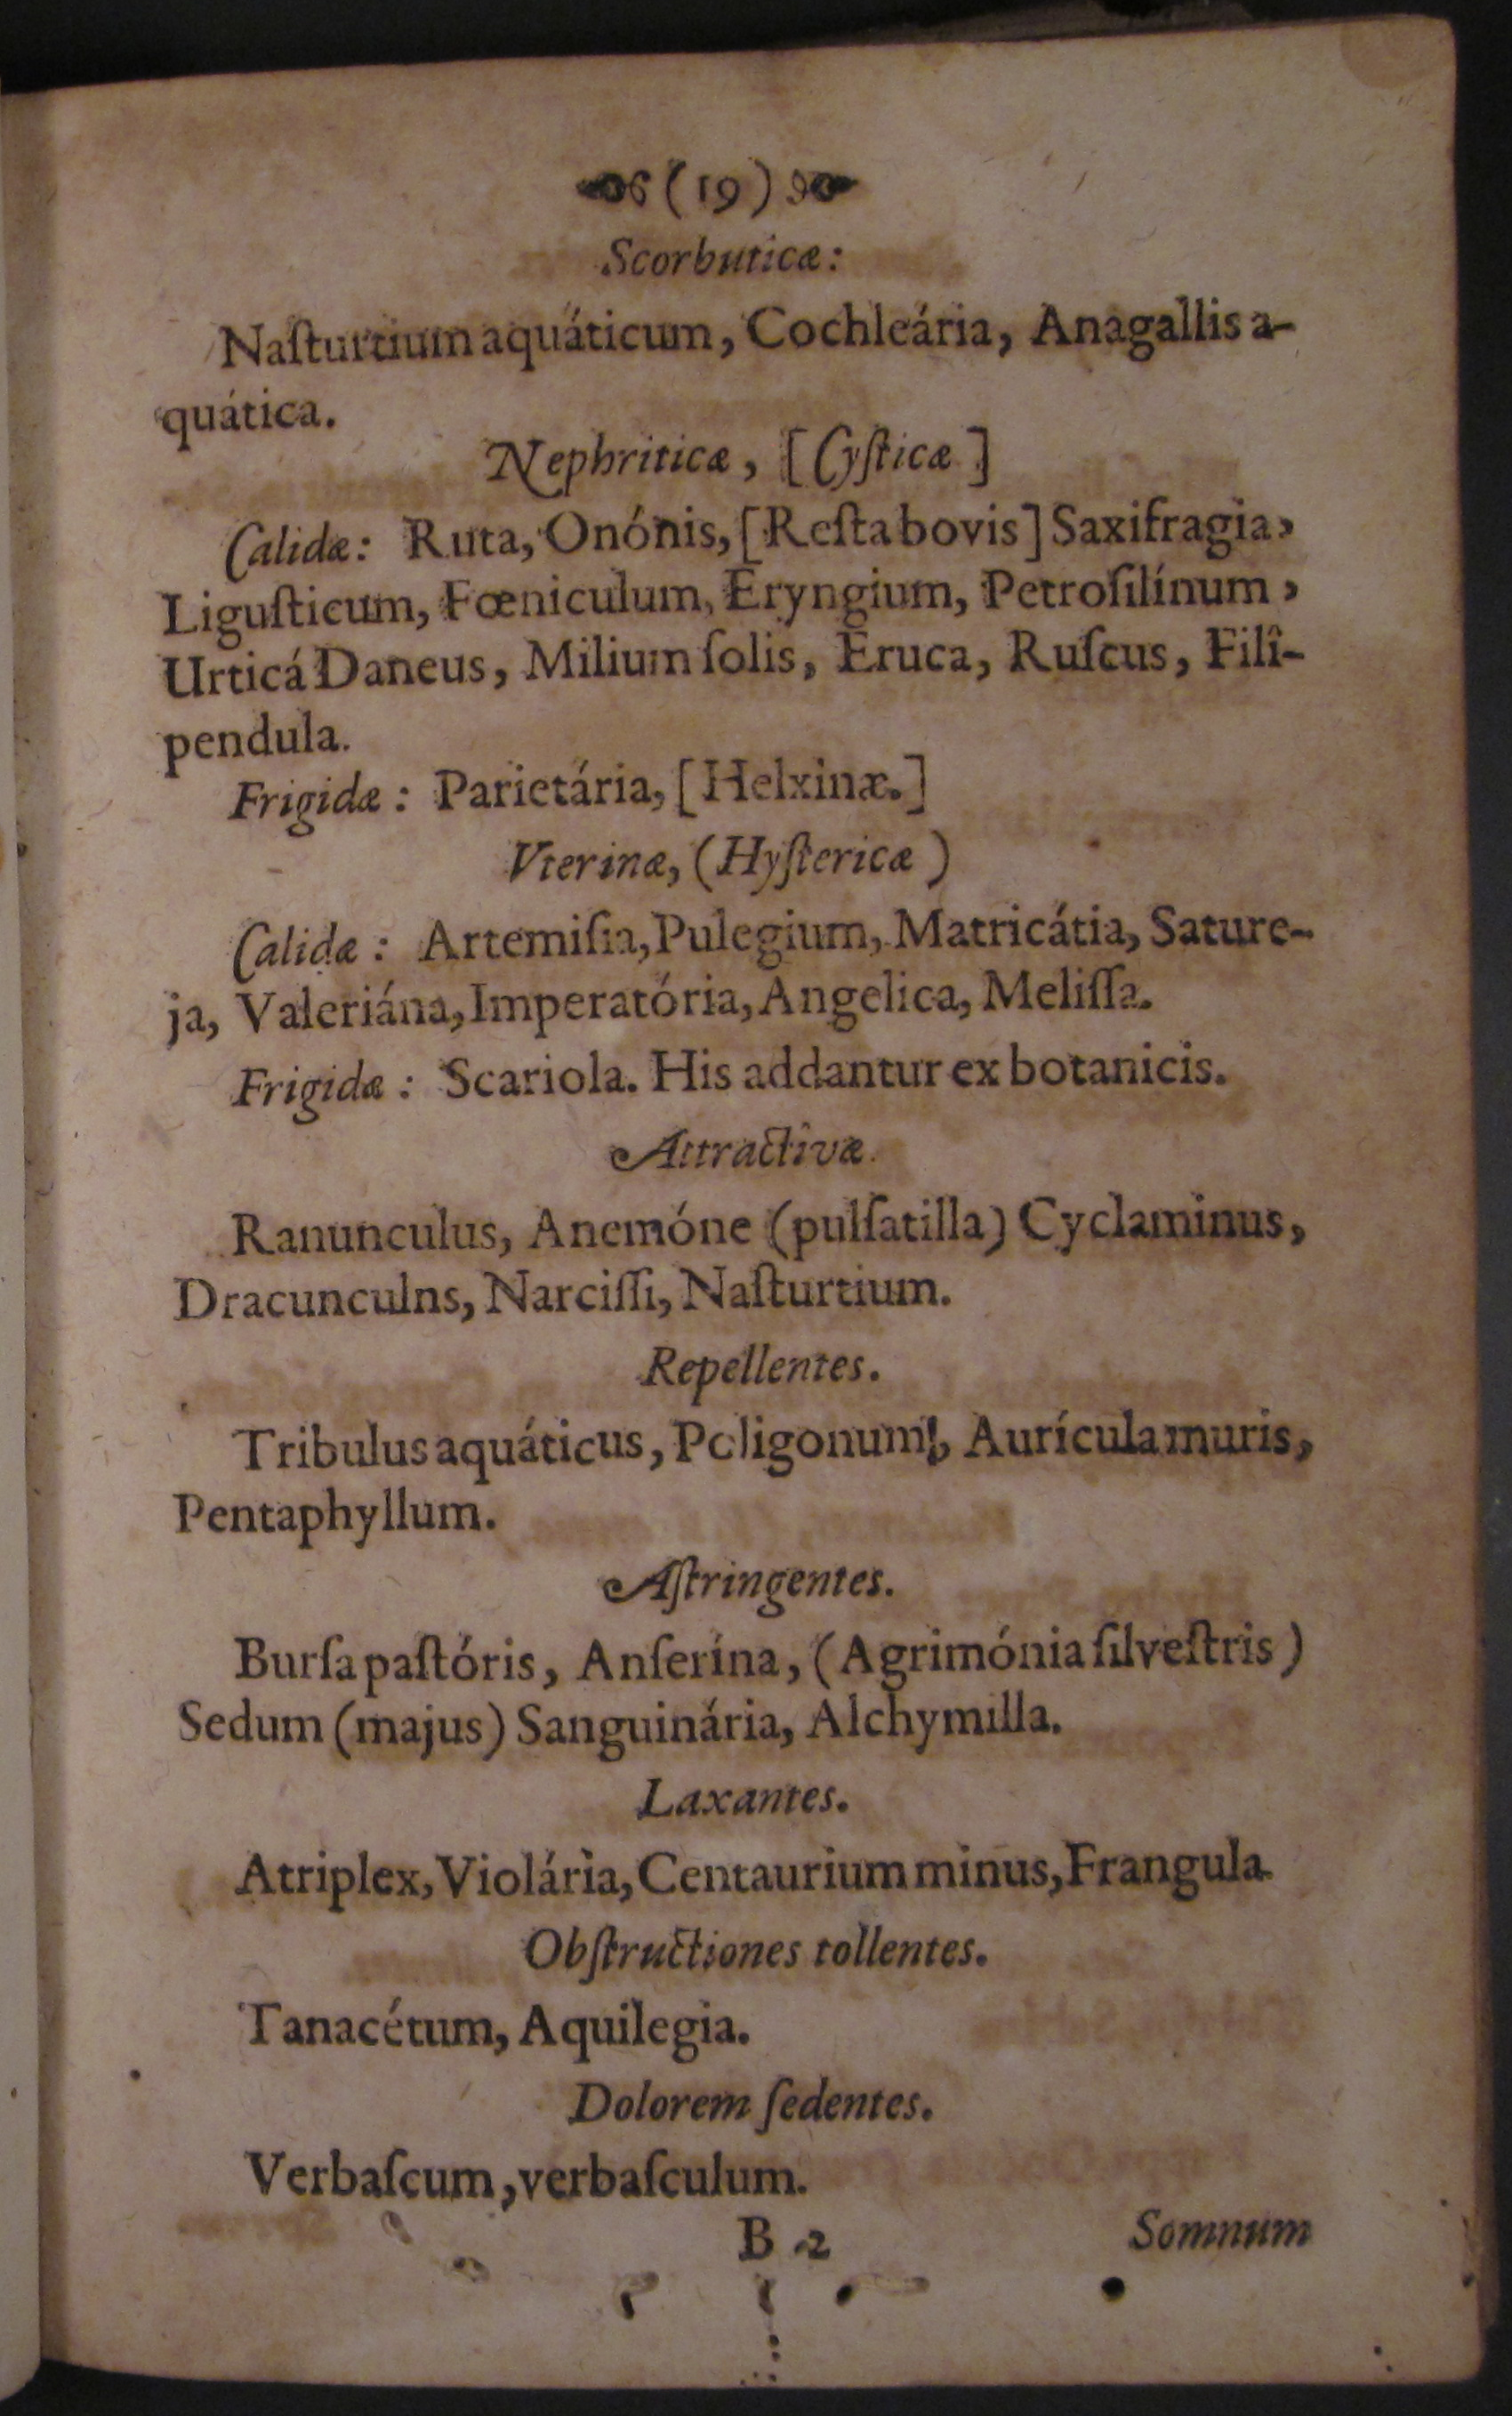 (19)
Scorbuticæ:
Naſturtium aquáticum, Cochleária, Anagallis a-
quática.
Nephriticæ, [Cyſticæ]
Calidæ: Ruta, Onónis, [Reſta bovis] Saxifragia,
Liguſticum, Fœniculum, Eryngium, Petroſilínum,
Urticá Daneus, Milium ſolis, Eruca, Ruſcus, Filî-
pendula.
Frigidæ: Parietária, [Helxinæ.]
Vterinæ, (Hyſtericæ)
Calidæ: Artemiſia, Pulegium, Matricátia, Sature-
ja, Valeriána, Imperatória, Angelica, Meliſſa.
Frigidæ: Scariola. His addantur ex botanicis.
Attractîvæ.
Ranunculus, Anemóne (pulſatilla) Cyclaminus,
Dracunculns, Narciſſi, Naſturtium.
Repellentes.
Tribulus aquáticus, Poligonum, Aurícula muris,
Pentaphyllum.
Aſtringentes.
Burſa paſtóris, Anſerína, (Agrimónia ſilveſtris)
Sedum (majus) Sanguinária, Alchymilla.
Laxantes.
Atriplex, Violária, Centaurium minus, Frangula.
Obſtructiones tollentes.
Tanacétum, Aquilegia.
Dolorem ſedentes.
Verbaſcum, verbaſculum.
B 2 Somnum